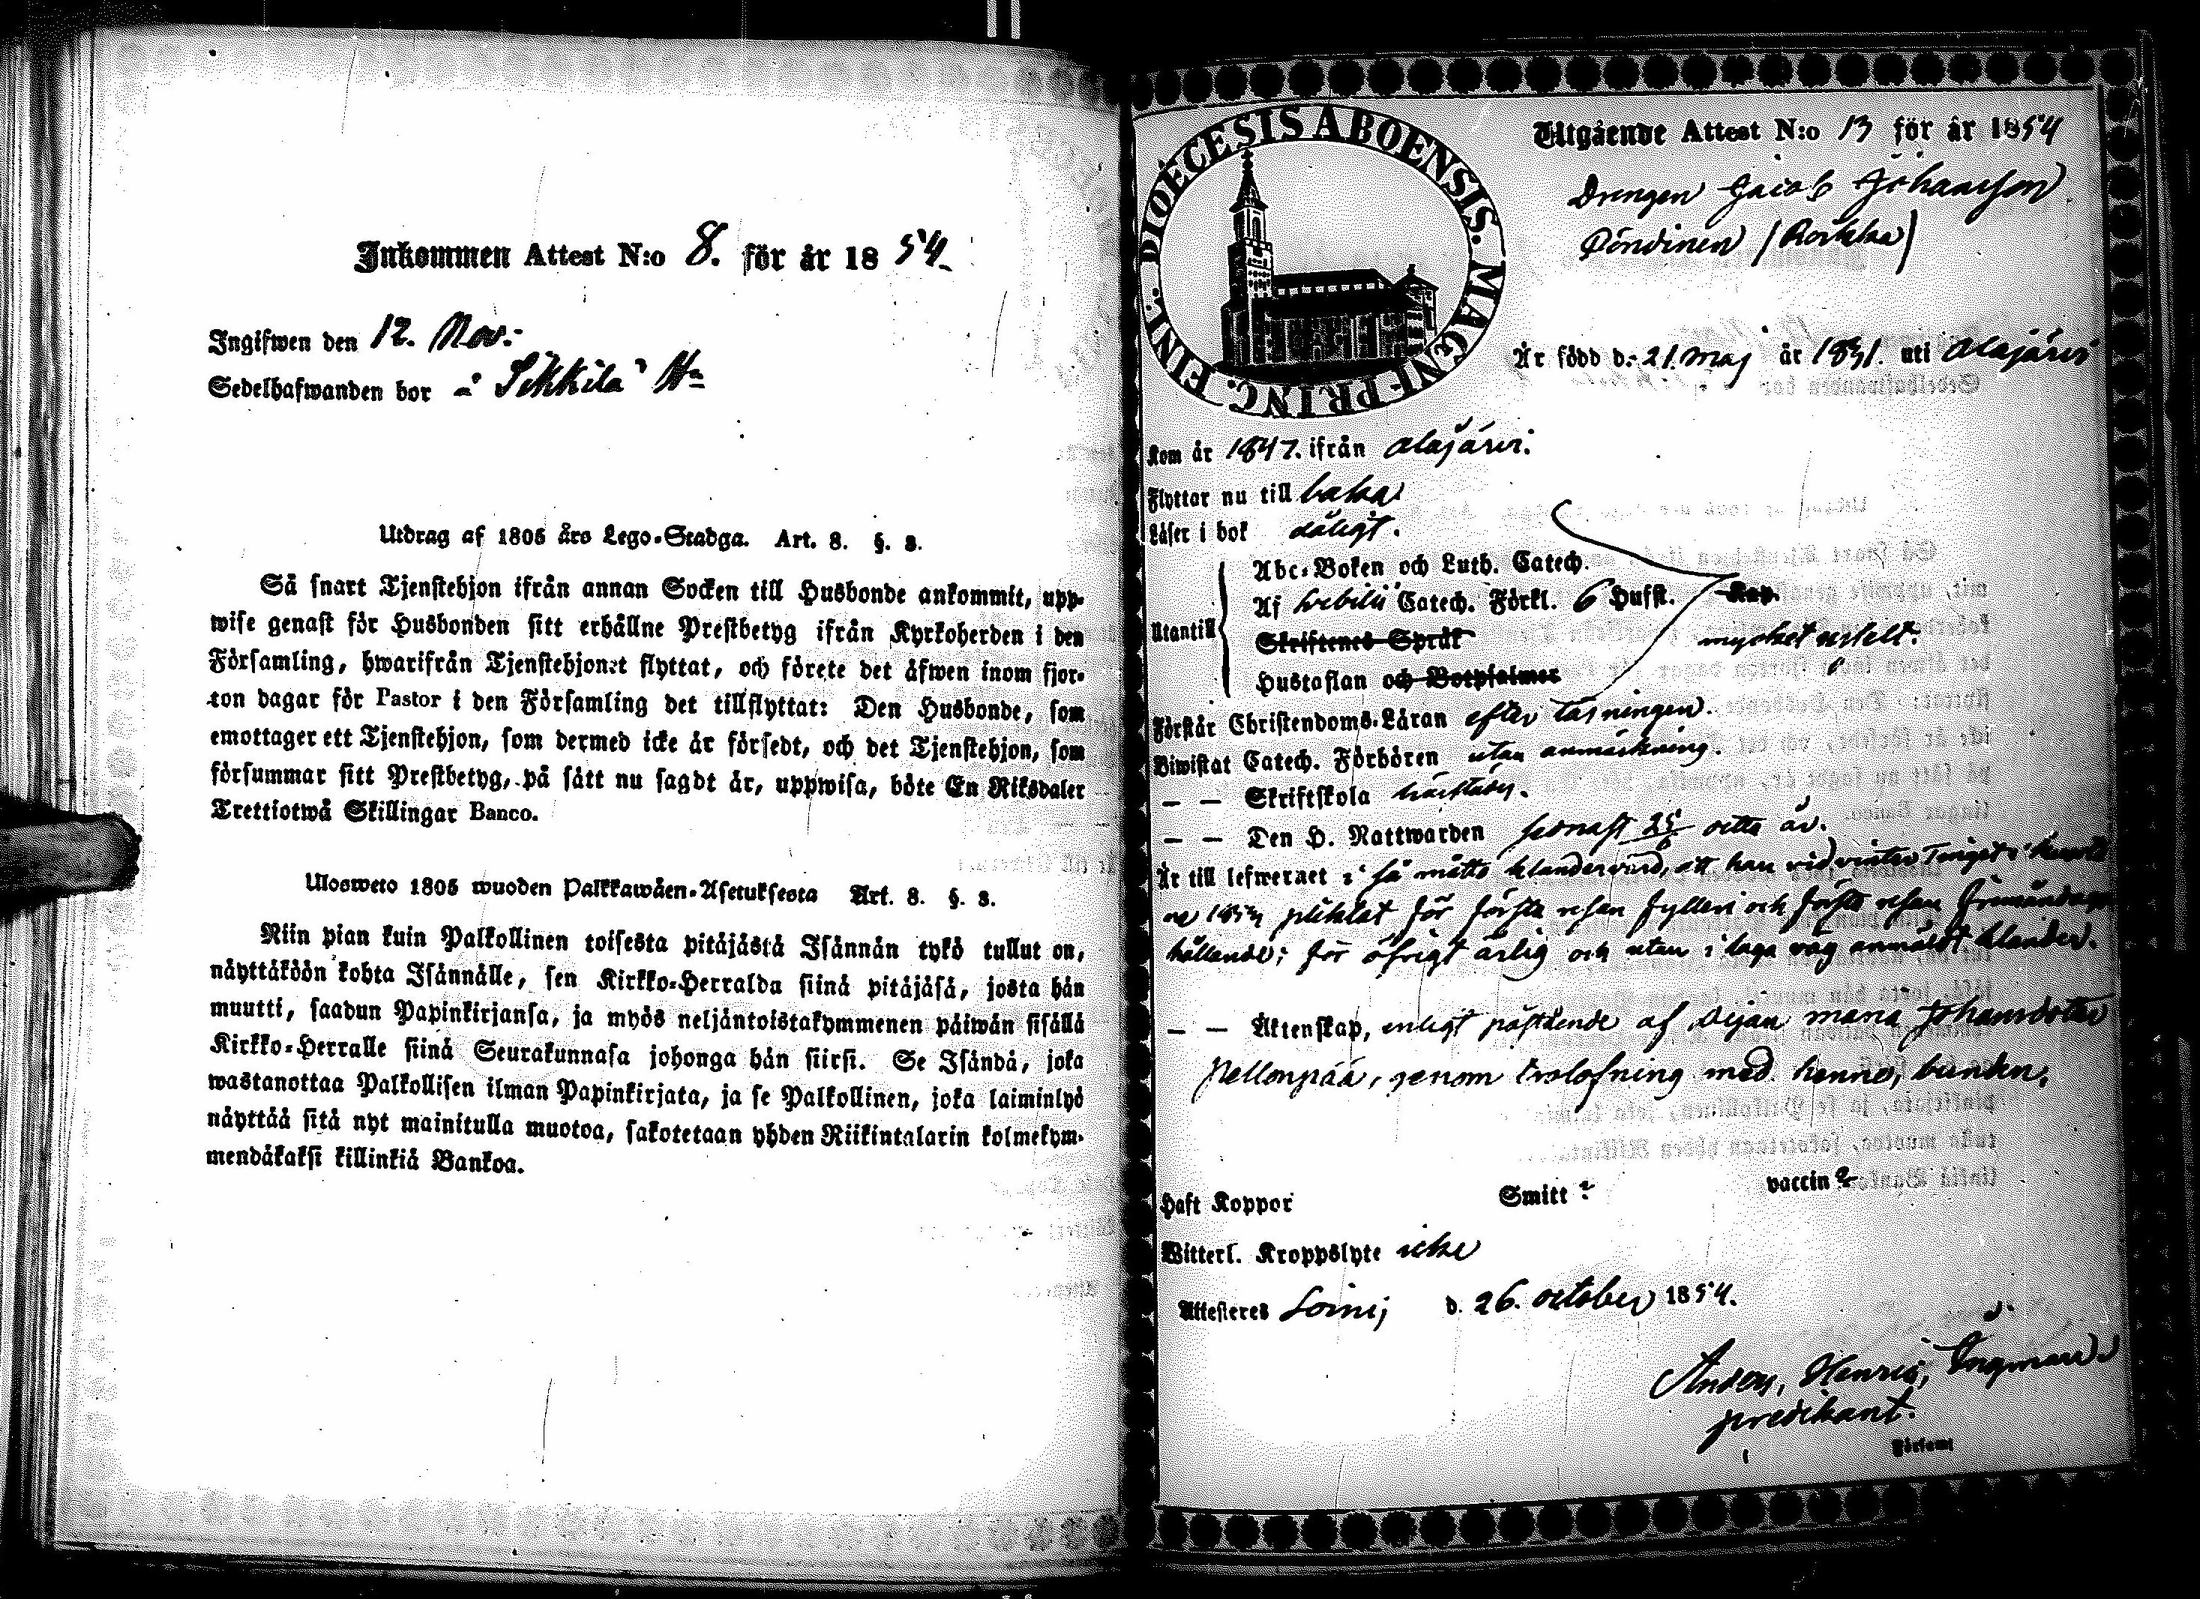 Inkommen Attest N:o 8. för år 1854.
Ingifwen den 12. Nov:
Sedelhafwanden bor å Sikkila Hn
Utdrag af 1805 års Lego-Stadga. Art. 8. §. 3.
Så snart Tjenstehjon ifrån annan Socken till Husbonde ankommit, upp-
wise genast för Husbonden sitt erhållne Prestbetyg ifrån Kyrkoherden i den
Församling, hwarifrån Tjenstehjonet flyttat, och förete det äfwen inom fjor-
ton dagar för Pastor i den Församling det tillflyttat: Den Husbonde, som
emottager ett Tjenstehjon, som dermed icke är försedt, och det Tjenstehjon, som
försummar sitt Prestbetyg, på sätt nu sagdt är, uppwisa, böte En Riksdaler
Trettiotwå Skillingar Banco.
Ulosweto 1805 wuoden Palkkawäen-Asetuksesta Art. 8. §. 3.
Niin pian kuin Palkollinen toisesta pitäjästä Isännän tykö tullut on,
näyttäköön kohta Isännälle, sen Kirkko-Herralda siinä pitäjäsä, josta hän
muutti, saadun Papinkirjansa, ja myös neljäntoistakymmenen päiwän sisällä
Kirkko-Herralle siinä Seurakunnasa johonga hän siirsi. Se Isändä, joka
wastanottaa Palkollisen ilman Papinkirjata, ja se Palkollinen, joka laiminlyö
näyttää sitä nyt mainitulla muotoa, sakotetaan yhden Riikintalarin kolmekym-
mendäkaksi killinkiä Bankoa.
DIOECESIS ABOENSIS. MAGNI PRINC. FINL.
Utgående Attest N:o 13 för år 1854
Drengen Jacob Johansson
Röndinen (Roikka)
Är född d. 21. Maj år 1831. uti Alajärvi
Kom år 1847. ifrån Alajärvi.
Flyttar nu till baka
Läser i bok dåligt.
Abc-Boken och Luth. Catech.
Utantill
Af Svebilii Catech. Förkl. 6 Hufst. Kap.
Skriftenes Språk
mycket uselt.
Hustaflan och Botpsalmer
Förstår Christendoms-Läran efter läsningen.
Biwistat Catech. Förhören utan anmärkning.
— — Skriftskola härstädes.
— — Den H. Nattwarden sednast 25/6 detta år.
Är till lefwernet i så måtto klandervärd, att han vid vinter Tinget i
år 1854 pliktat för första resan fylleri och första resan
hållande; för öfrigt ärlig och utan i laga väg anmäldt klander.
— — Äktenskap, enligt påstående af Pigan Maria Johansdotter
Pellonpää, genom trolofning med henne, bunden.
Haft Koppor Smitt ? vaccin ?
Witterl. Kroppslyte icke
Attesteras Soini, d. 26. October 1854.
Anders Henric Ingman
predikant.
Församl